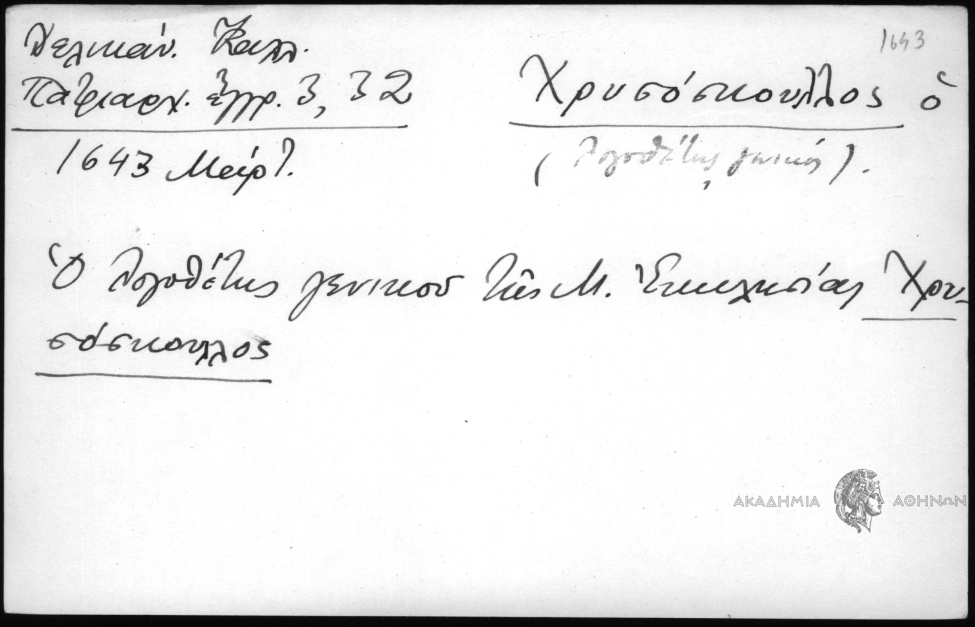 Δελικάν. Καλλ.
Πατριαρχ. ἔγγρ. 3, 32
1643 Μάρτ.
1643
Χρυσόσκουλλος ὁ
(Λογοθέτης γενικός).
Ὁ Λογοθέτης γενικοῦ τῆς Μ. Ἐκκλησίας Χρυ-
σόσκουλλος
ΑΚΑΔΗΜΙΑ ΑΘΗΝΩΝ